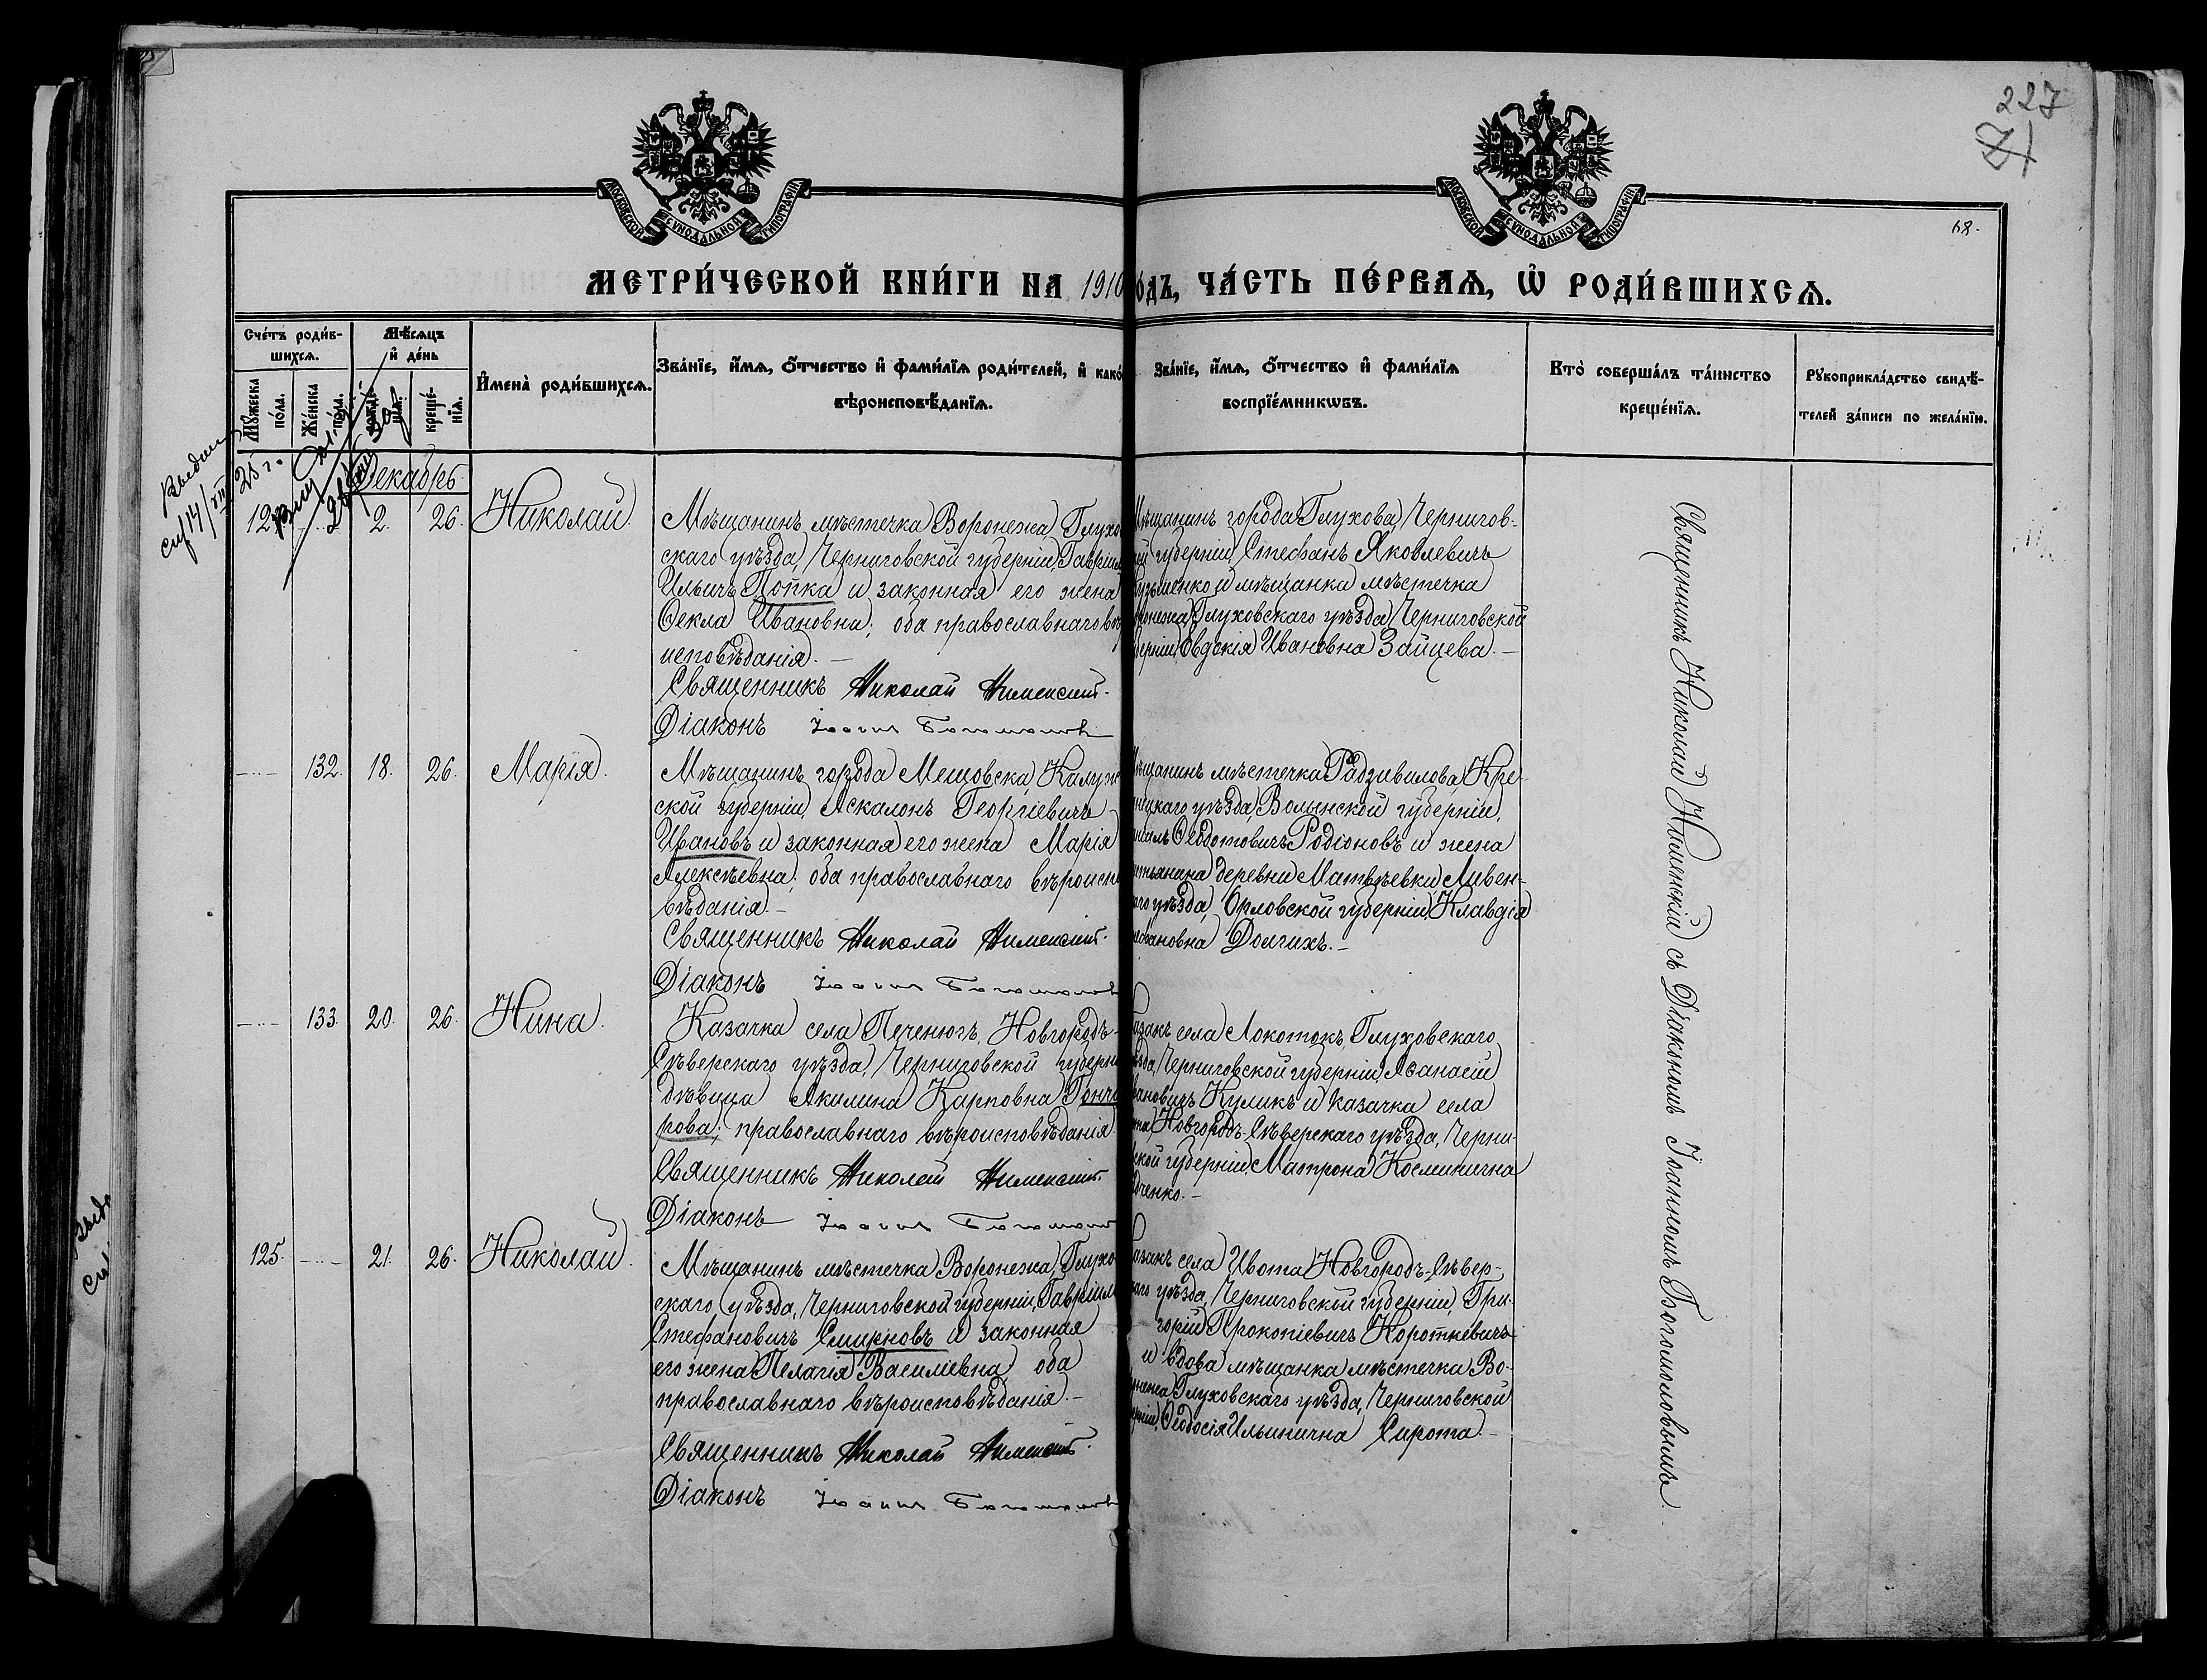 227
68.
МОСКОВСКОЙ СѴНОДАЛЬНОЙ ТИПОГРАФІИ
МОСКОВСКОЙ СѴНОДАЛЬНОЙ ТИПОГРАФІИ
МЕТРИ́ЧЕСКОЙ КНИ́ГИ НА 1910
о́дъ, ЧА́СТЬ ПЕ́РВАѦ, Ѡ҆ РОДИ́ВШИХСѦ.
Сче́тъ роди́в-
шихсѧ.
Мѣ́сѧцъ
и҆ де́нь
Мꙋ́жеска
по́ла.
Же́нска
по́ла.
рожде́-
нїѧ.
креще́-
нїѧ.
И҆мена̀ роди́вшихсѧ.
Зва́нїе, и҆́мѧ, ѻ҆́тчество и҆ фами́лїѧ роди́телей, и҆ како́
вѣроисповѣ́данїѧ.
Зва́нїе, и҆́мѧ, ѻ҆́тчество и҆ фами́лїѧ
воспрїе́мникѡвъ.
Кто̀ соверша́лъ та́инство
креще́нїѧ.
Рꙋкоприкла́дство свидѣ́-
телей за́писи по жела́нїю.
25 г.
Декабрь.
2. 26. Николай.
Мѣщанинъ мѣстечка Воронежа, Глухо
скаго уѣзда, Черниговской губерніи, Гавріил
Ильичъ Попка и законная его жена
Ѳекла Ивановна; оба православнаго вѣ
исповѣданія. —
Священникъ Николай
Діаконъ Іоаннъ Богомолов
мѣщанинъ города Глухова, Чернигов-
ой губерніи, Стефанъ Яковлевичъ
и мѣщанка мѣстечка
онежа Глуховскаго уѣзда, Черниговской
берніи, Евдокія Ивановна Зайцева. —
132. 18. 26. Марія.
Мѣщанинъ города Мещовска, Калуж
ской губерніи, Аскалонъ Георгіевичъ
Ивановъ и законная его жена Марія
Алексѣевна; оба православнаго вѣроиспо
вѣданія. —
Священникъ Николай
Діаконъ Іоаннъ Богомолов
ѣщанинъ мѣстечка Радзивилова, Кре-
нецкаго уѣзда, Волынской губерніи,
Ѳеодотовичъ Родіоновъ и жена
естьянина деревни Матвѣевки, Ливен-
аго уѣзда, Орловской губерніи, Клавдія
Долгихъ. —
133. 20. 26. Нина.
Казачка села Печенюгъ, Новгородъ-
Сѣверскаго уѣзда, Черниговской губерн
дѣвица Акилина Карповна Гонча
рова; православнаго вѣроисповѣданія
Священникъ Николай
Діаконъ Іоаннъ Богомолов
азакъ села Локотокъ, Глуховскаго
ѣзда, Черниговской губерніи, Аѳанасій
вановичъ Куликъ и казачка села
Новгородъ-Сѣверскаго уѣзда, Черни-
ской губерніи, Матрона Косминична
дченко. —
125. 21. 26. Николай.
Мѣщанинъ мѣстечка Воронежа, Глухо
скаго уѣзда, Черниговской губерніи, Гавріил
Стефановичъ Смирновъ и законная
его жена Пелагія Василіевна, оба
православнаго вѣроисповѣданія. —
Священникъ Николай
Діаконъ Іоаннъ Богомолов
азакъ села Ивота Новгородъ-Сѣвер-
каго уѣзда, Черниговской губерніи, Гри-
горій Прокопіевичъ Короткевичъ
и вдова мѣщанка мѣстечка Во-
онежа Глуховскаго уѣзда, Черниговской
ерніи, Ѳеодосія Ильинична Сирота. —
Священникъ Николай съ Діакономъ Іоанномъ Богомоловымъ.